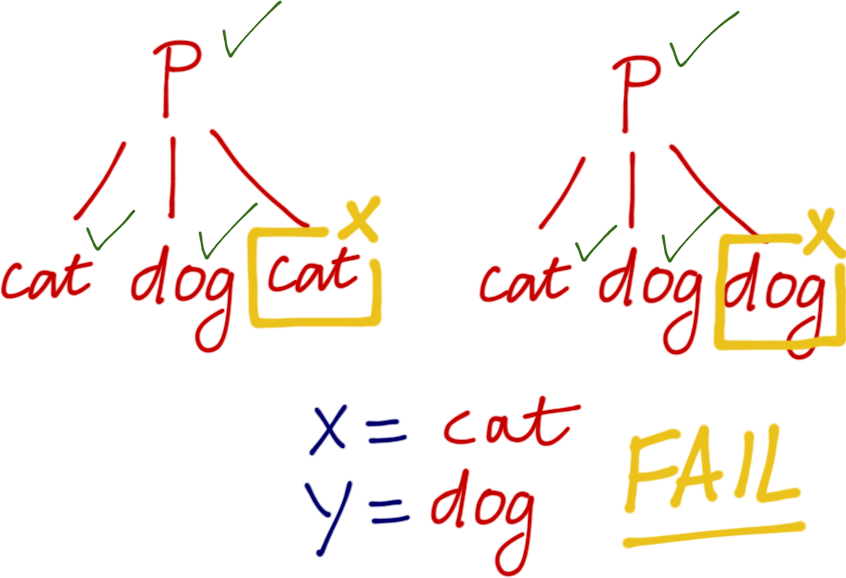 P P
cat dog cat x cat dog dog x
x = cat
y = dog
FAIL